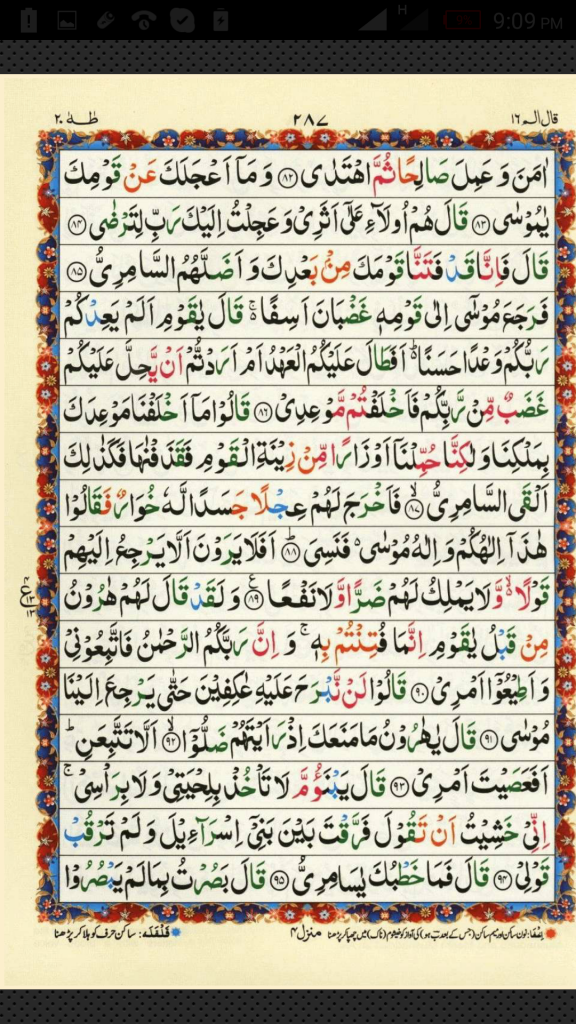 H 9:09 PM
طٰهٰ ٢٠ ٢٨٧ قال الم ١٦
اٰمَنَ وَ عَمِلَ صَالِحًا ثُمَّ اهْتَدٰى ﴿٨٢﴾ وَ مَاۤ اَعْجَلَكَ عَنْ قَوْمِكَ
يٰمُوْسٰى ﴿٨٣﴾ قَالَ هُمْ اُولَآءِ عَلٰۤى اَثَرِيْ وَ عَجِلْتُ اِلَيْكَ رَبِّ لِتَرْضٰى ﴿٨٤﴾
قَالَ فَاِنَّا قَدْ فَتَنَّا قَوْمَكَ مِنْۢ بَعْدِكَ وَ اَضَلَّهُمُ السَّامِرِيُّ ﴿٨٥﴾
فَرَجَعَ مُوْسٰۤى اِلٰى قَوْمِهٖ غَضْبَانَ اَسِفًا ۚ قَالَ يٰقَوْمِ اَلَمْ يَعِدْكُمْ
رَبُّكُمْ وَعْدًا حَسَنًا ؕ اَفَطَالَ عَلَيْكُمُ الْعَهْدُ اَمْ اَرَدْتُّمْ اَنْ يَّحِلَّ عَلَيْكُمْ
غَضَبٌ مِّنْ رَّبِّكُمْ فَاَخْلَفْتُمْ مَّوْعِدِيْ ﴿٨٦﴾ قَالُوْا مَاۤ اَخْلَفْنَا مَوْعِدَكَ
بِمَلْكِنَا وَ لٰكِنَّا حُمِّلْنَاۤ اَوْزَارًا مِّنْ زِيْنَةِ الْقَوْمِ فَقَذَفْنٰهَا فَكَذٰلِكَ
اَلْقَى السَّامِرِيُّ ﴿٨٧﴾ فَاَخْرَجَ لَهُمْ عِجْلًا جَسَدًا لَّهٗ خُوَارٌ فَقَالُوْا
هٰذَاۤ اِلٰهُكُمْ وَ اِلٰهُ مُوْسٰى ۬ فَنَسِيَ ﴿٨٨﴾ اَفَلَا يَرَوْنَ اَلَّا يَرْجِعُ اِلَيْهِمْ
قَوْلًا ۬ وَّ لَا يَمْلِكُ لَهُمْ ضَرًّا وَّ لَا نَفْعًا ﴿٨٩﴾ وَ لَقَدْ قَالَ لَهُمْ هٰرُوْنُ
مِنْ قَبْلُ يٰقَوْمِ اِنَّمَا فُتِنْتُمْ بِهٖ ۚ وَ اِنَّ رَبَّكُمُ الرَّحْمٰنُ فَاتَّبِعُوْنِيْ
وَ اَطِيْعُوْۤا اَمْرِيْ ﴿٩٠﴾ قَالُوْا لَنْ نَّبْرَحَ عَلَيْهِ عٰكِفِيْنَ حَتّٰى يَرْجِعَ اِلَيْنَا
مُوْسٰى ﴿٩١﴾ قَالَ يٰهٰرُوْنُ مَا مَنَعَكَ اِذْ رَاَيْتَهُمْ ضَلُّوْۤا ﴿٩٢﴾ اَلَّا تَتَّبِعَنِ ؕ
اَفَعَصَيْتَ اَمْرِيْ ﴿٩٣﴾ قَالَ يَبْنَؤُمَّ لَا تَاْخُذْ بِلِحْيَتِيْ وَ لَا بِرَاْسِيْ ۚ
اِنِّيْ خَشِيْتُ اَنْ تَقُوْلَ فَرَّقْتَ بَيْنَ بَنِيْۤ اِسْرَآءِيْلَ وَ لَمْ تَرْقُبْ
قَوْلِيْ ﴿٩٤﴾ قَالَ فَمَا خَطْبُكَ يٰسَامِرِيُّ ﴿٩٥﴾ قَالَ بَصُرْتُ بِمَا لَمْ يَبْصُرُوْا
اِخفا: نون ساکن اور میم ساکن (جس کے بعد ب ہو) کی آواز کو خیشوم (ناک) میں چھپا کر پڑھنا منزل ٤ قَلقَلَه: ساکن حرف کو ہلا کر پڑھنا